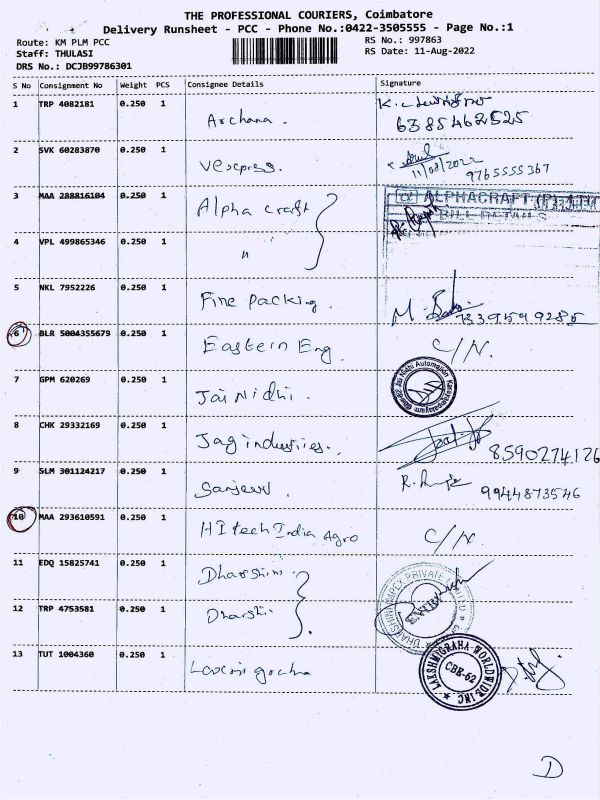 THE PROFESSIONAL COURIERS, Coimbatore
Delivery Runsheet - PCC - Phone No.:0422-3505555 - Page No.:1
Route: KM PLM PCC
Staff: THULASI
DRS No.: DCJB99786301
RS No.: 997863
RS Date: 11-Aug-2022
S No Consignment No Weight PCS Consignee Details Signature
1 TRP 4082181 0.250 1 Archana. K.
6385462525
2 SVK 60283870 0.250 1 Vexpress.
11/08/2022
9765555367
3 MAA 288816104 0.250 1 Alpha craft ALPHACRAFT (P) LTD
4 VPL 499865346 0.250 1 "
5 NKL 7952226 0.250 1 Fine packing. M.
7339549285
6 BLR 5004355679 0.250 1 Eastern Eng. C/N.
7 GPM 620269 0.250 1 Jai Nidhi. Jai Nidhi Automation
8 CHK 29332169 0.250 1 Jag industries.
8590274126
9 SLM 301124217 0.250 1 Sanjeev. R.
9944873546
10 MAA 293610591 0.250 1 HI tech India Agro C/N.
11 EDQ 15825741 0.250 1 Dharshini. PRIVATE
12 TRP 4753581 0.250 1 Dharshi.
13 TUT 1004360 0.250 1 LAKSHMIGRAHA WORLDWIDE INC
CBE-62
D